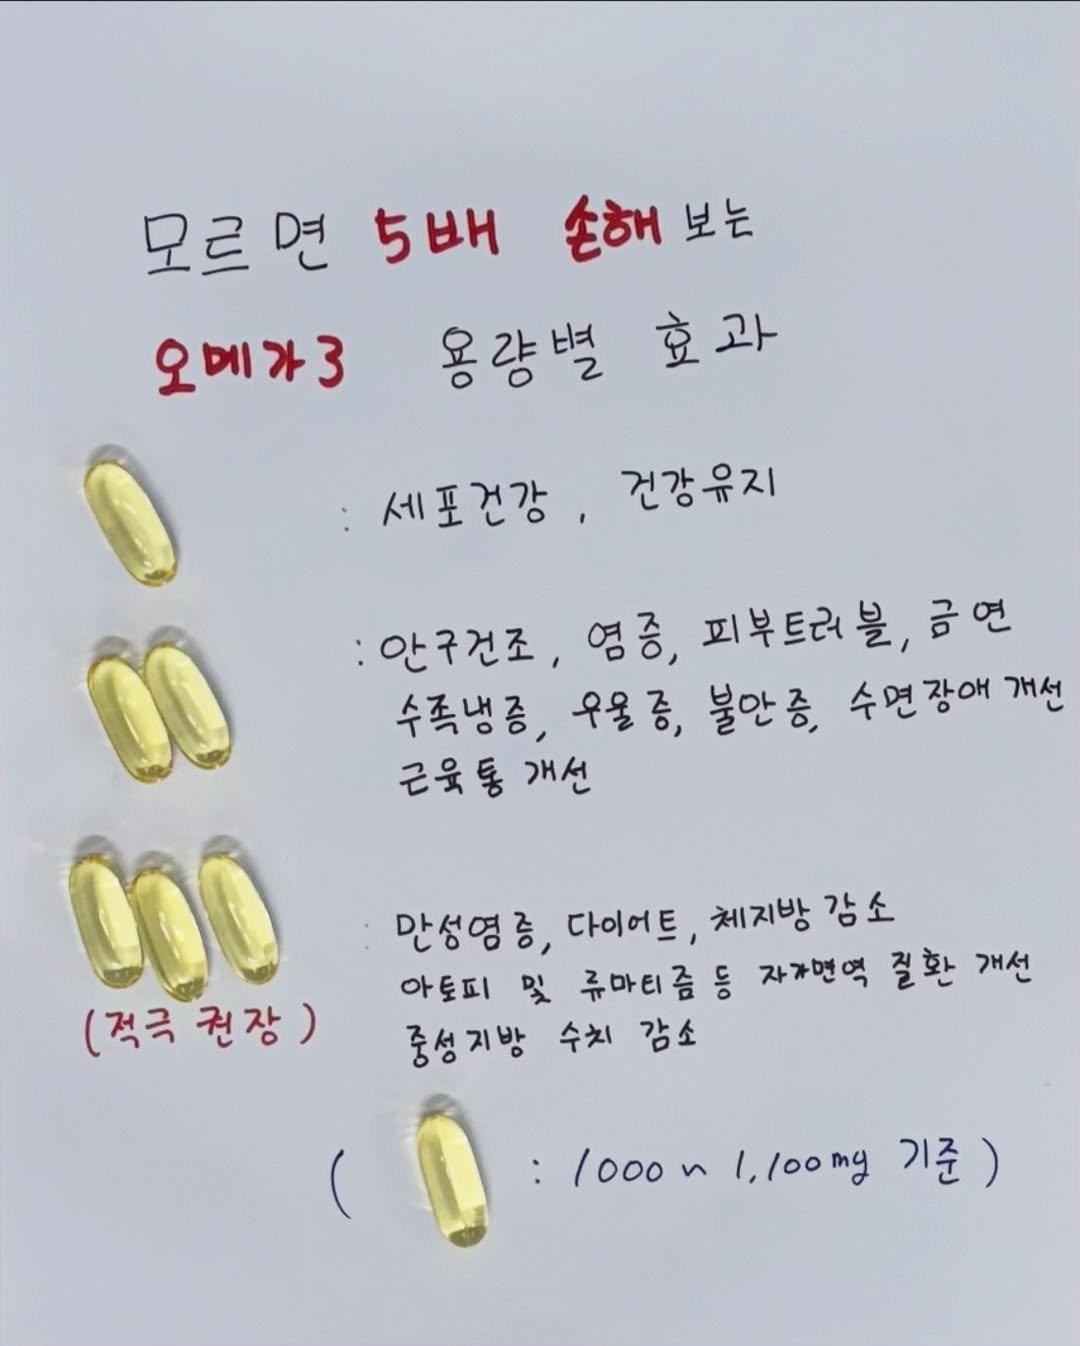 모르면 5배 손해 보는
오메가3 용량별 효과
: 세포건강, 건강유지
: 안구건조, 염증, 피부트러블, 금연
수족냉증, 우울증, 불안증, 수면장애 개선
근육통 개선
: 만성염증, 다이어트, 체지방 감소
아토피 및 류마티즘 등 자가면역 질환 개선
(적극 권장)
중성지방 수치 감소
( : 1000~1,100mg 기준)